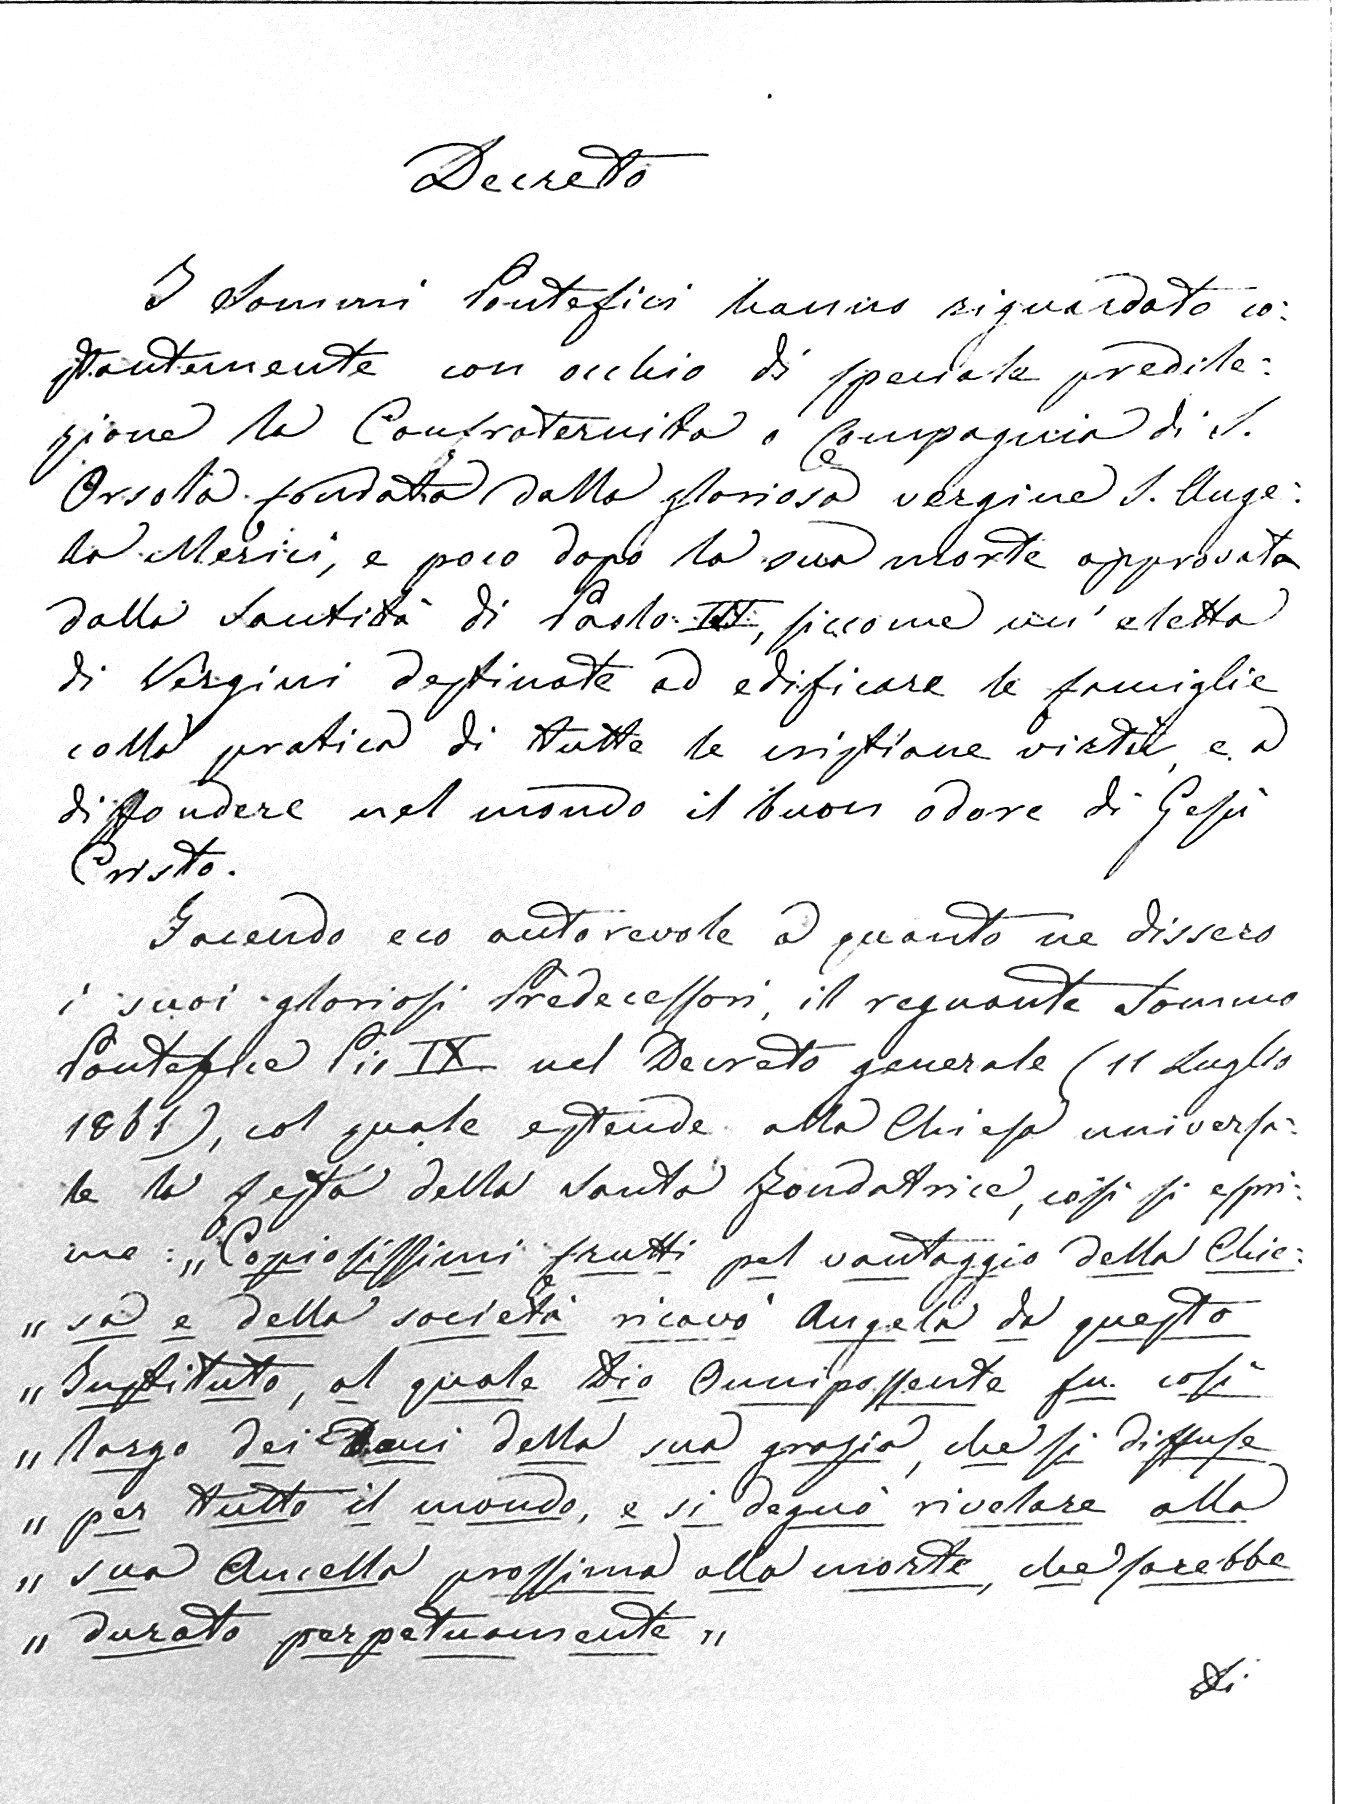 Decreto
I Sommi Pontefici hanno riguardato co:
stantemente con occhio di speciale predile:
zione la Confraternita o Compagnia di S.
Orsola fondata dalla gloriosa vergine S. Ange:
la Merici, e poco dopo la sua morte approvata
dalla Santità di Paolo III, siccome un' eletta
di Vergini destinate ad edificare le famiglie
colla pratica di tutte le cristiane virtù, e a
diffondere nel mondo il buon odore di Gesù
Cristo.
Facendo eco autorevole a quanto ne dissero
i suoi gloriosi Predecessori, il regnante Sommo
Pontefice Pio IX nel Decreto generale (11 Luglio
1861), col quale estende alla Chiesa universa:
le la festa della Santa Fondatrice, così si espri:
me: „Copiosissimi frutti pel vantaggio della Chie:
„ sa e della società ricavò Angela da questo
„ Instituto, al quale Dio Onnipossente fu così
„ largo dei Doni della sua grazia, che si diffuse
„ per tutto il mondo, e si degnò rivelare alla
„ sua Ancella prossima alla morte, che sarebbe
„ durato perpetuamente „
Di